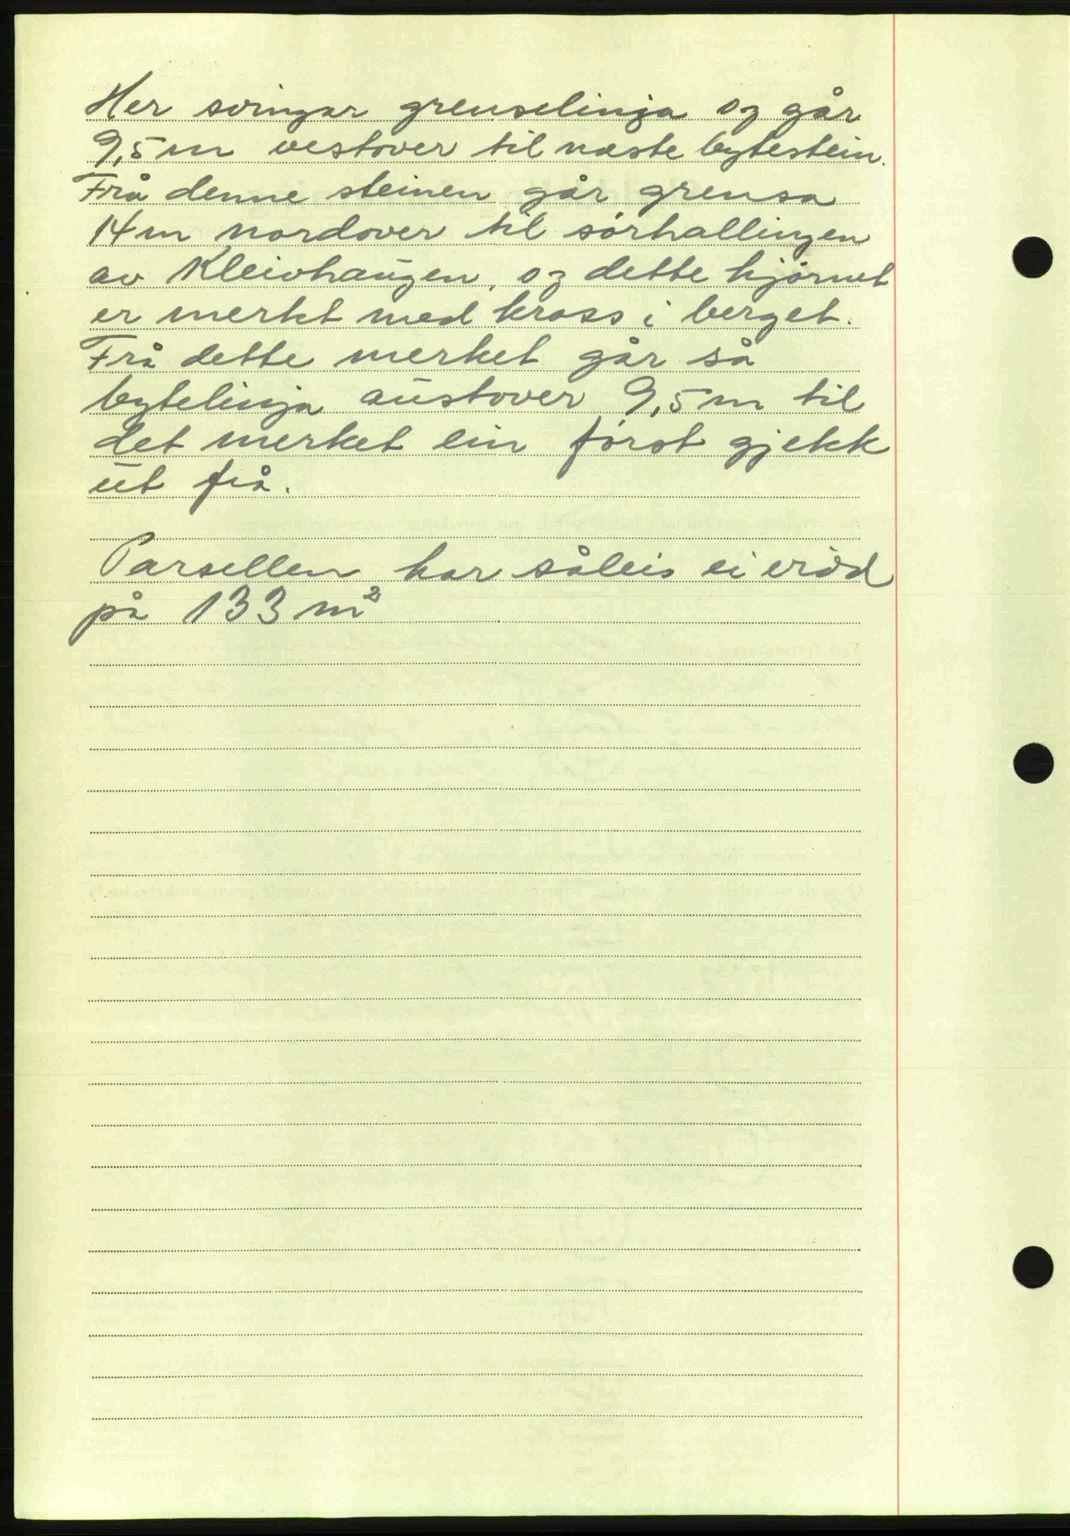 Her svingar grenselinja og går
9,5 m vestover til næste bytestein.
Frå denne steinen går grensa
14 m nordover til sørhallingen
av Kleivhaugen, og dette hjørnet
er merkt med kross i berget.
Frå dette merket går så
bytelinja austover 9,5 m til
det merket ein først gjekk
ut frå.
Parsellen har såleis ei vidd
på 133 m²